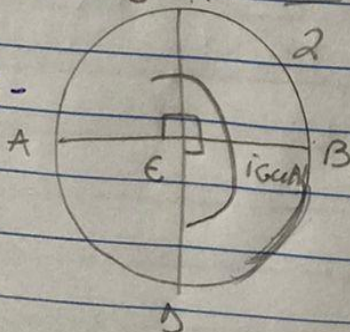 2
A
B
E
iGuAl
D